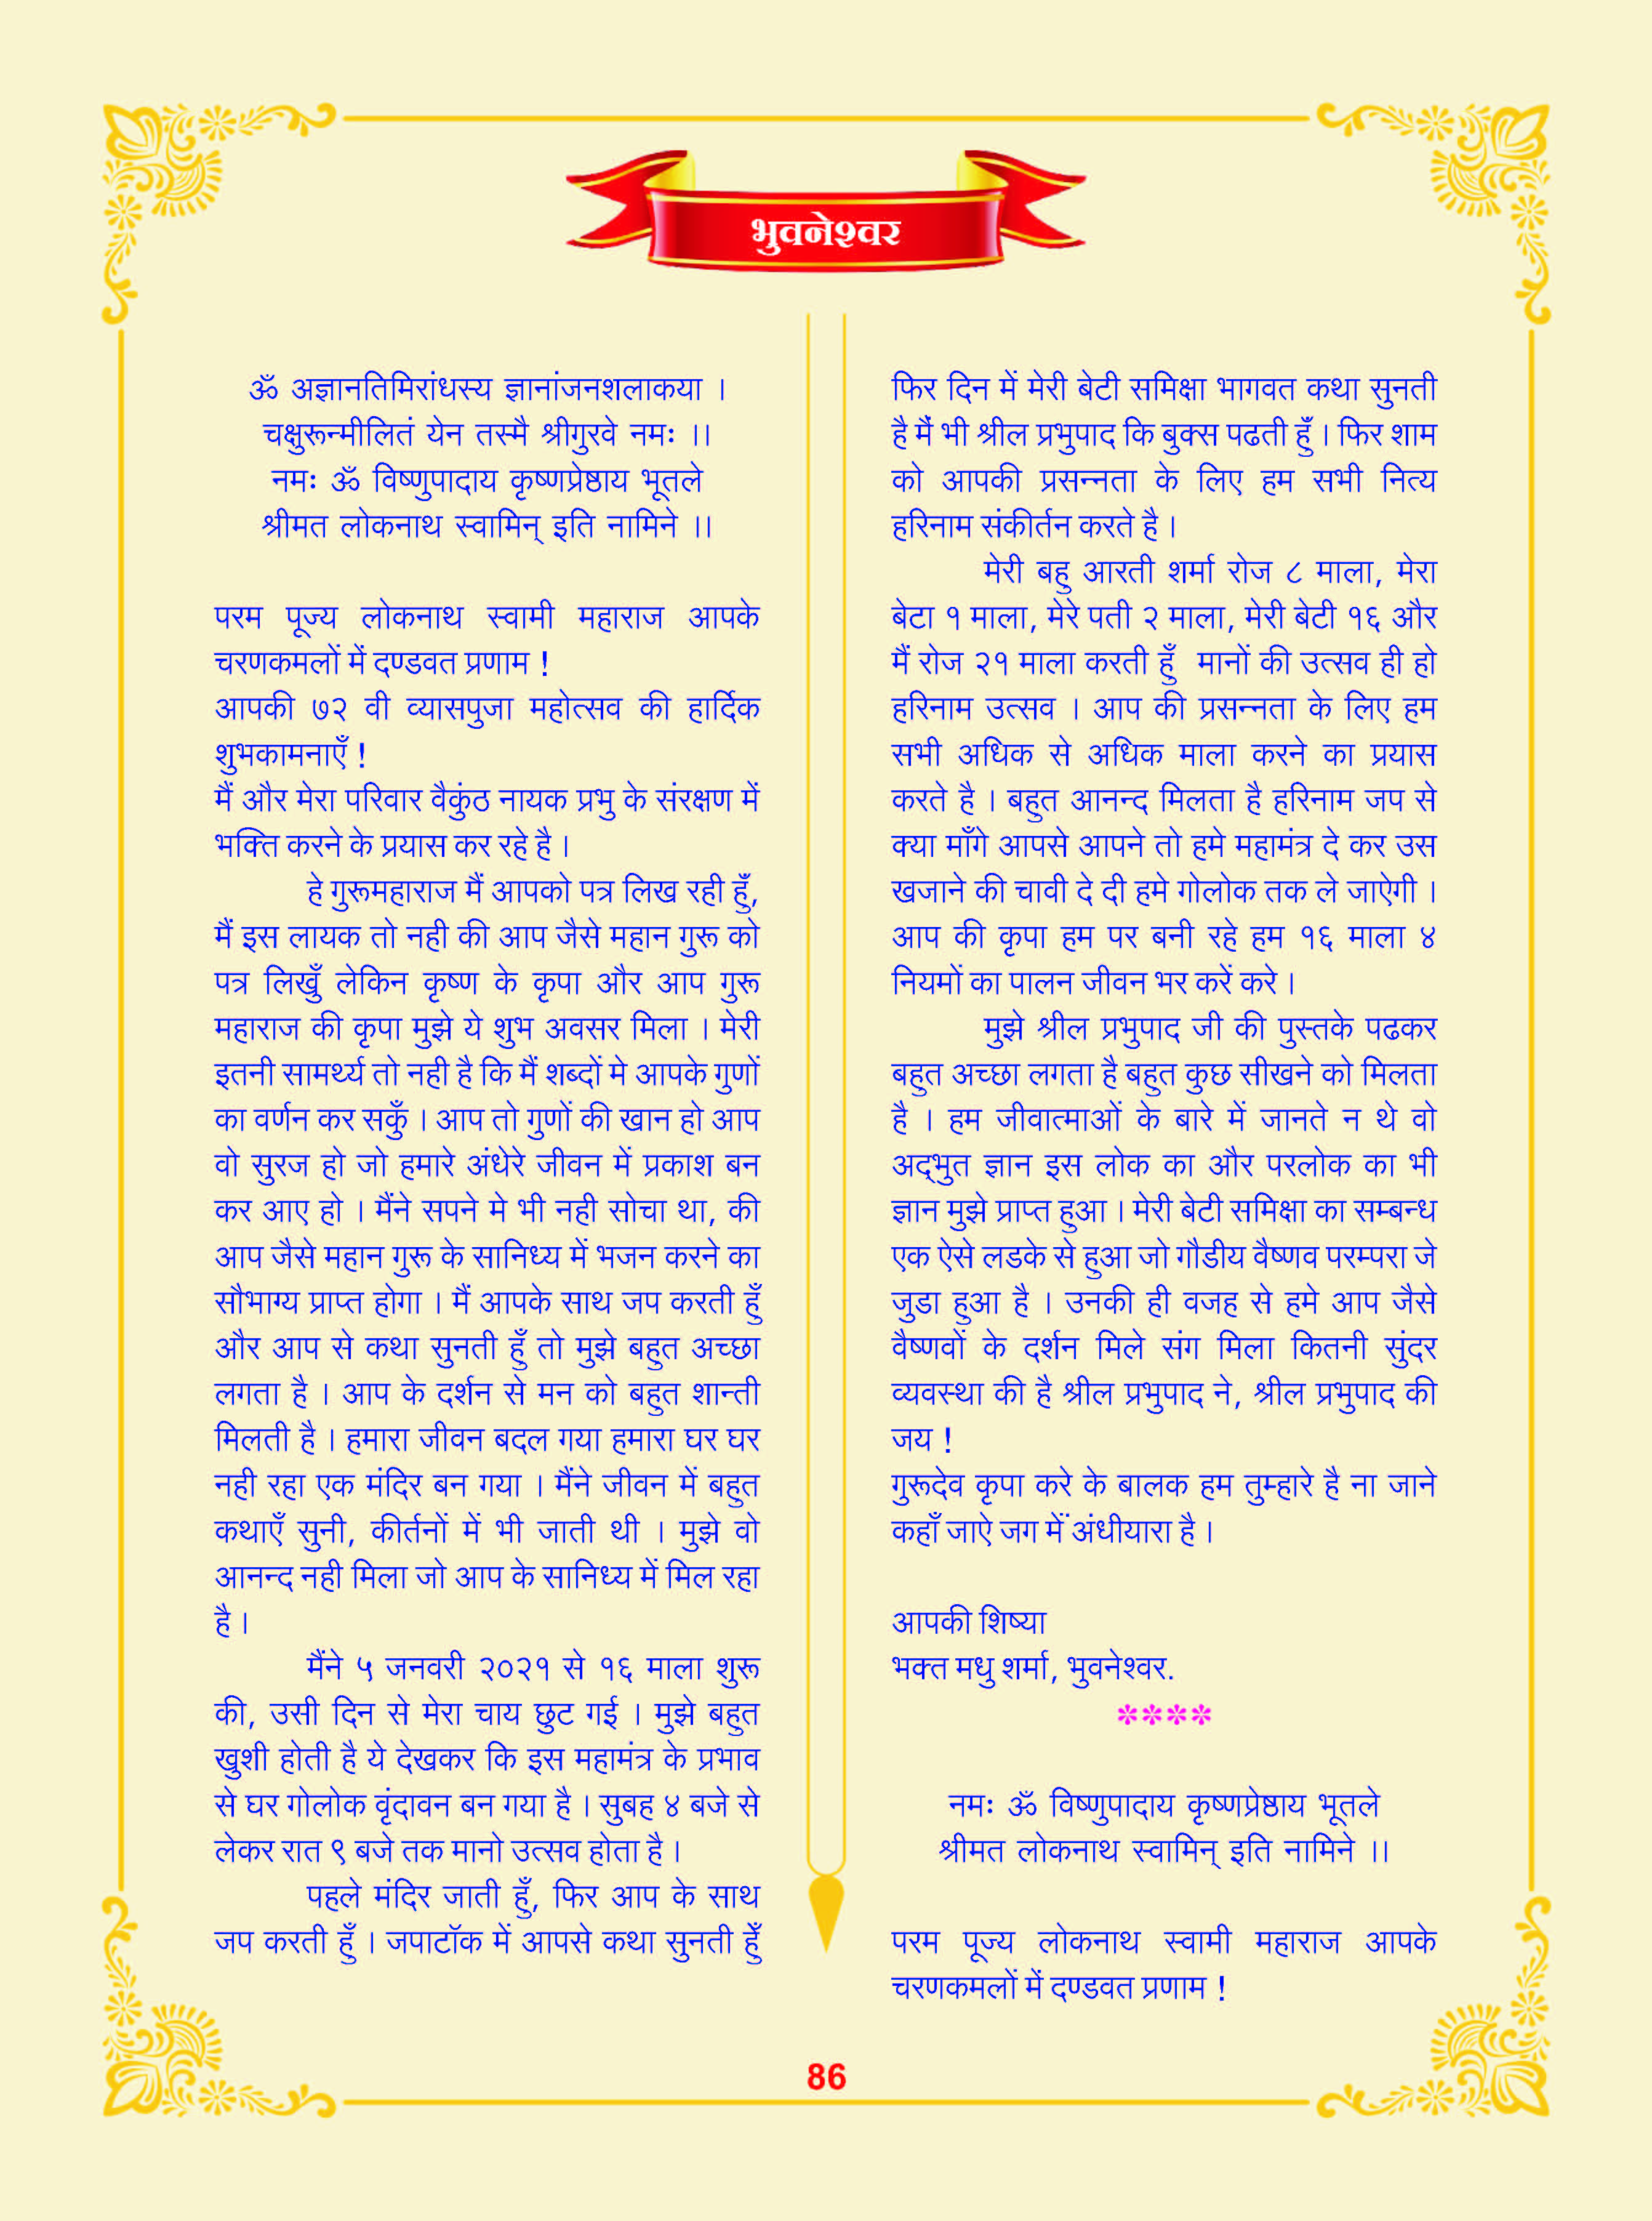 भुवनेश्वर
ॐ अज्ञानतिमिरांधस्य ज्ञानांजनशलाकया ।
चक्षुरून्मीलितं येन तस्मै श्रीगुरवे नमः ।।
नमः ॐ विष्णुपादाय कृष्णप्रेष्ठाय भूतले
श्रीमत लोकनाथ स्वामिन् इति नामिने ।।
परम पूज्य लोकनाथ स्वामी महाराज आपके
चरणकमलों में दण्डवत प्रणाम !
आपकी ७२ वी व्यासपुजा महोत्सव की हार्दिक
शुभकामनाएँ !
मैं और मेरा परिवार वैकुंठ नायक प्रभु के संरक्षण में
भक्ति करने के प्रयास कर रहे है ।
हे गुरूमहाराज मैं आपको पत्र लिख रही हुँ,
मैं इस लायक तो नही की आप जैसे महान गुरू को
पत्र लिखुँ लेकिन कृष्ण के कृपा और आप गुरू
महाराज की कृपा मुझे ये शुभ अवसर मिला । मेरी
इतनी सामर्थ्य तो नही है कि मैं शब्दों मे आपके गुणों
का वर्णन कर सकुँ । आप तो गुणों की खान हो आप
वो सुरज हो जो हमारे अंधेरे जीवन में प्रकाश बन
कर आए हो । मैंने सपने मे भी नही सोचा था, की
आप जैसे महान गुरू के सानिध्य में भजन करने का
सौभाग्य प्राप्त होगा । मैं आपके साथ जप करती हुँ
और आप से कथा सुनती हुँ तो मुझे बहुत अच्छा
लगता है । आप के दर्शन से मन को बहुत शान्ती
मिलती है । हमारा जीवन बदल गया हमारा घर घर
नही रहा एक मंदिर बन गया । मैंने जीवन में बहुत
कथाएँ सुनी, कीर्तनों में भी जाती थी । मुझे वो
आनन्द नही मिला जो आप के सानिध्य में मिल रहा
है ।
मैंने ५ जनवरी २०२१ से १६ माला शुरू
की, उसी दिन से मेरा चाय छुट गई । मुझे बहुत
खुशी होती है ये देखकर कि इस महामंत्र के प्रभाव
से घर गोलोक वृंदावन बन गया है । सुबह ४ बजे से
लेकर रात ९ बजे तक मानो उत्सव होता है ।
पहले मंदिर जाती हुँ, फिर आप के साथ
जप करती हुँ । जपाटॉक में आपसे कथा सुनती हेुँ
फिर दिन में मेरी बेटी समिक्षा भागवत कथा सुनती
है मैं भी श्रील प्रभुपाद कि बुक्स पढती हुँ । फिर शाम
को आपकी प्रसन्नता के लिए हम सभी नित्य
हरिनाम संकीर्तन करते है ।
मेरी बहु आरती शर्मा रोज ८ माला, मेरा
बेटा १ माला, मेरे पती २ माला, मेरी बेटी १६ और
मैं रोज २१ माला करती हुँ मानों की उत्सव ही हो
हरिनाम उत्सव । आप की प्रसन्नता के लिए हम
सभी अधिक से अधिक माला करने का प्रयास
करते है । बहुत आनन्द मिलता है हरिनाम जप से
क्या माँगे आपसे आपने तो हमे महामंत्र दे कर उस
खजाने की चावी दे दी हमे गोलोक तक ले जाऐगी ।
आप की कृपा हम पर बनी रहे हम १६ माला ४
नियमों का पालन जीवन भर करें करे ।
मुझे श्रील प्रभुपाद जी की पुस्तके पढकर
बहुत अच्छा लगता है बहुत कुछ सीखने को मिलता
है । हम जीवात्माओं के बारे में जानते न थे वो
अद्भुत ज्ञान इस लोक का और परलोक का भी
ज्ञान मुझे प्राप्त हुआ । मेरी बेटी समिक्षा का सम्बन्ध
एक ऐसे लडके से हुआ जो गौडीय वैष्णव परम्परा जे
जुडा हुआ है । उनकी ही वजह से हमे आप जैसे
वैष्णवों के दर्शन मिले संग मिला कितनी सुंदर
व्यवस्था की है श्रील प्रभुपाद ने, श्रील प्रभुपाद की
जय !
गुरूदेव कृपा करे के बालक हम तुम्हारे है ना जाने
कहाँ जाऐ जग में अंधीयारा है ।
आपकी शिष्या
भक्त मधु शर्मा, भुवनेश्वर.
****
नमः ॐ विष्णुपादाय कृष्णप्रेष्ठाय भूतले
श्रीमत लोकनाथ स्वामिन् इति नामिने ।।
परम पूज्य लोकनाथ स्वामी महाराज आपके
चरणकमलों में दण्डवत प्रणाम !
86